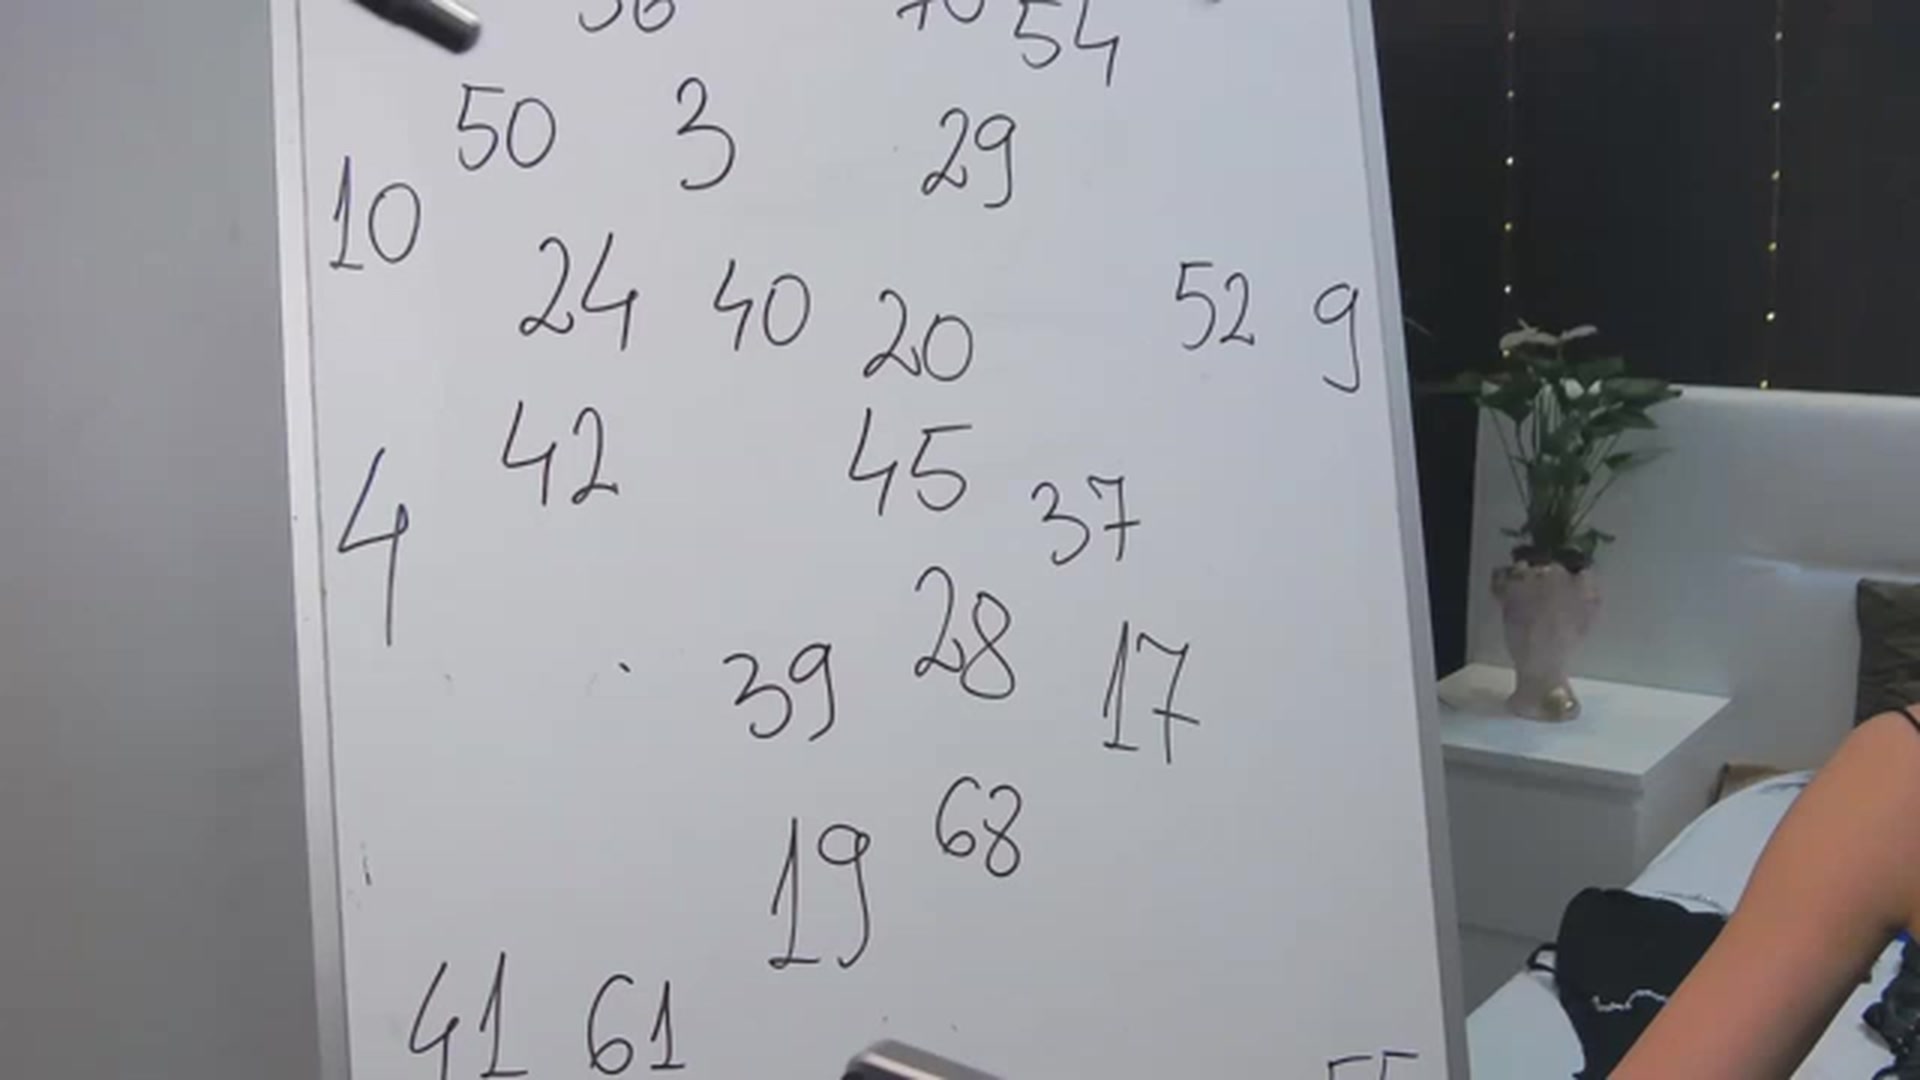 54
50 3 29
10
24 40 20 52 9
42 45 37
4
28
39 17
68
19
41 61